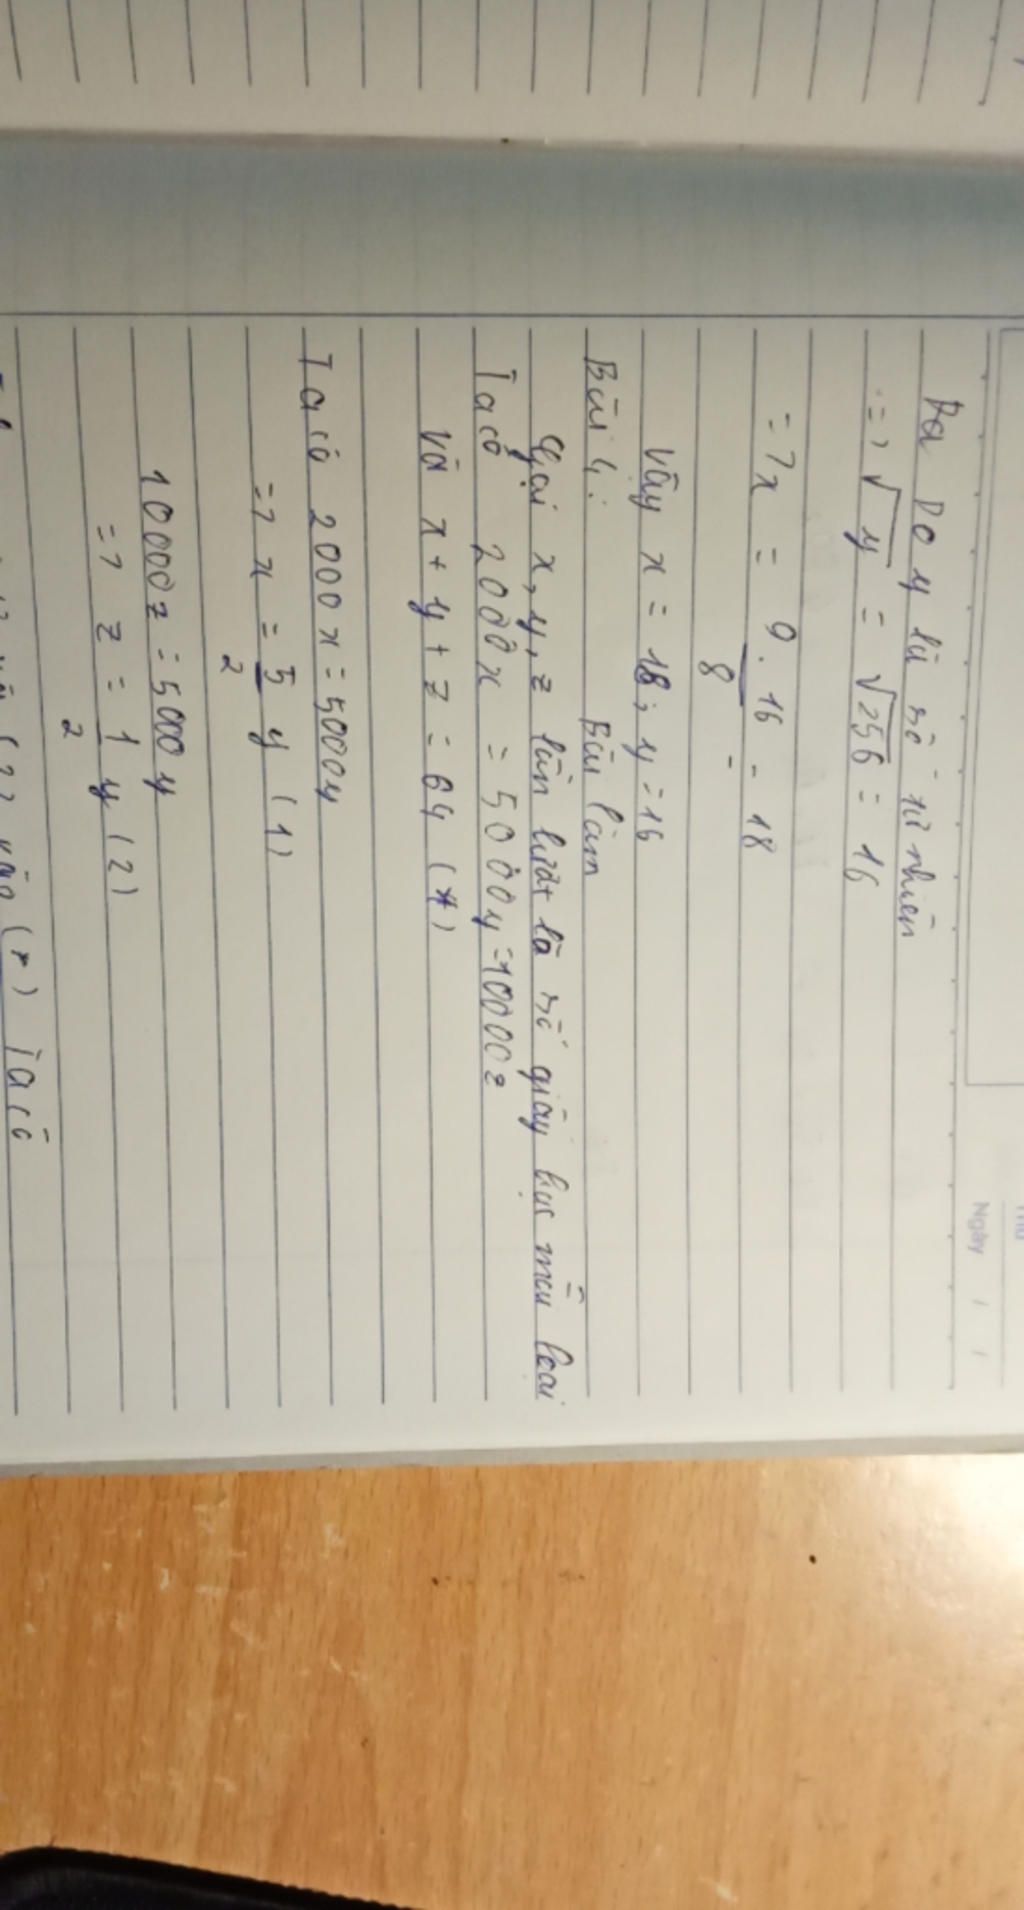 Thứ
Ngày / /
Do y là số tự nhiên
=> √y = √256 = 16
=> x = 9.16/8 = 18
Vậy x = 18; y = 16
Bài 4:
Bài làm
Gọi x, y, z lần lượt là số giấy bạc mỗi loại
Ta có 2000x = 5000y = 10000z
Và x + y + z = 64 (*)
Ta có 2000x = 5000y
=> x = 5/2 y (1)
10000z = 5000y
=> z = 1/2 y (2)
(2) vào (*) Ta có